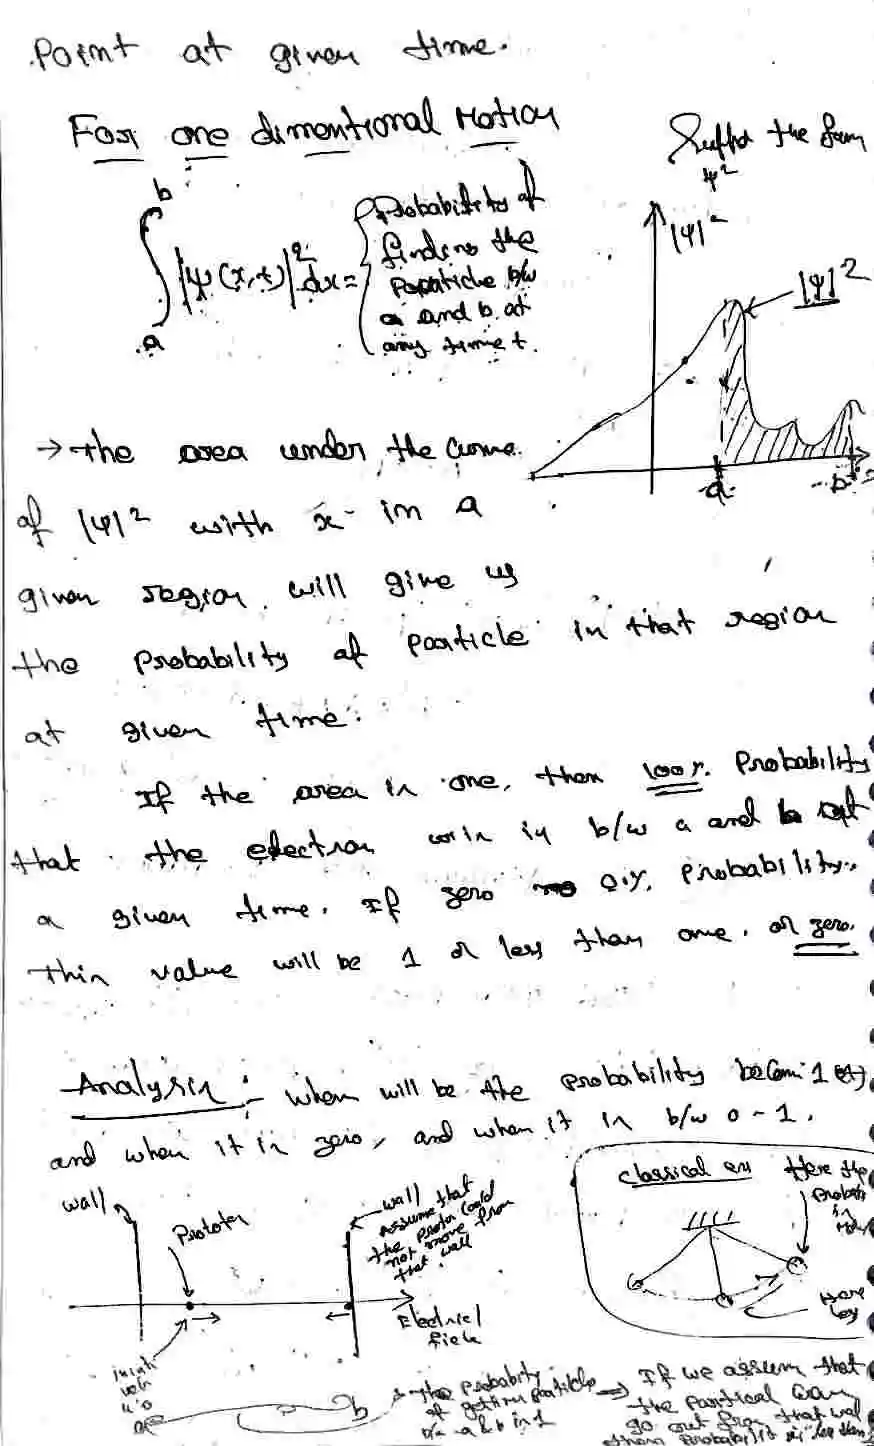 Point at given time.
For one dimentional Motion
Suppos the fun
ψ²
b
∫ |ψ(x,t)|² dx =
a
Probability of
finding the
Paraticle b/w
a and b at
any time t.
|ψ|²
|ψ|²
a
b
→ the area under the curve
of |ψ|² with x in a
given region will give us
the Probability of Particle in that region
at given time.
If the area is one, then 100%. Probability
that the electron is b/w a and b at
a given time. If zero 0%. Probability.
This value will be 1 or less than one. or zero.
Analysis :- when will be the probability becom 1
and when it is zero, and when it is b/w 0-1.
wall
Prototon
wall
Assume that
the Proton could
not move from
that wall
Electricl
field
a
b
the Probability
of getting particle
a & b is 1
classical ex
Here the
Probab
is
Here
less
⇒ If we assum that
the Partical can
go out from that wal
then Probabilit is less than